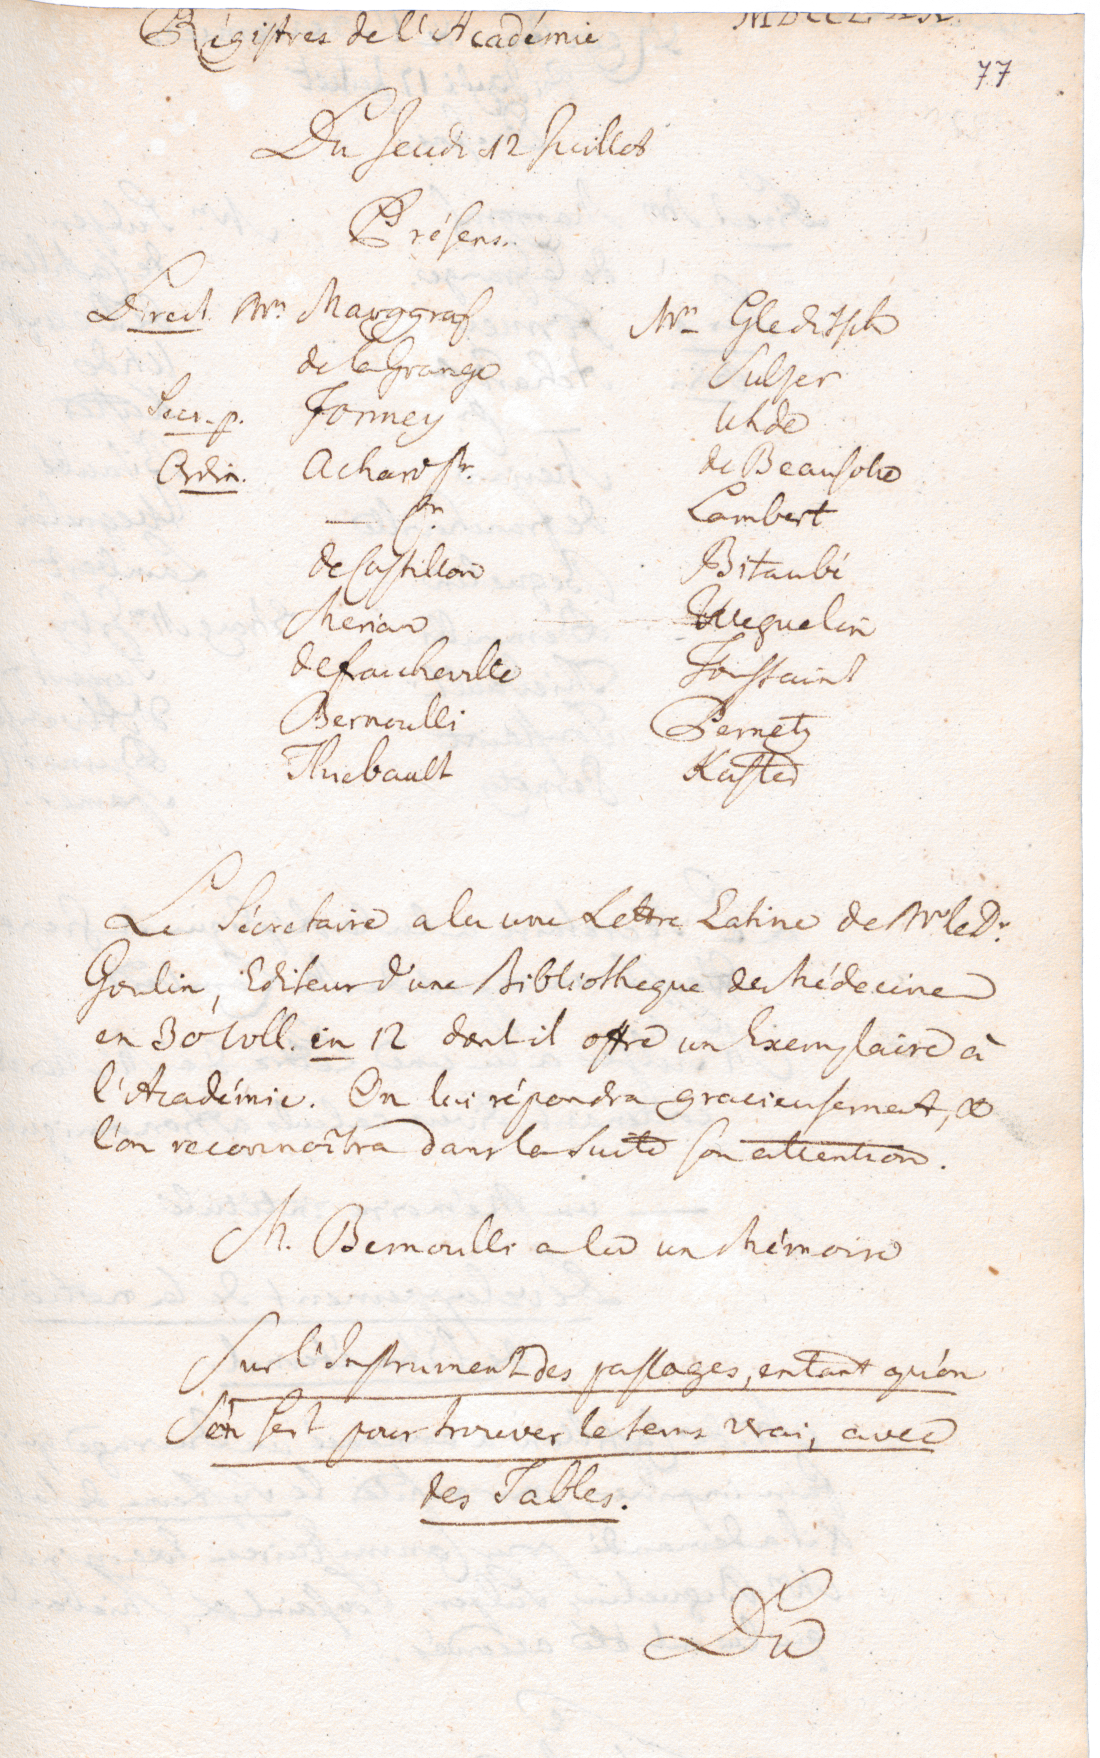 Régistres de l'Académie
77
Du Jeudi 12 Juillet
Présens.
Direct. Mrs Marggraf
de la Grange
Secr. p. Formey
Ordin. Achard sr.
— jr.
de Castillon
Merian
de Francheville
Bernoulli
Thiebault
Mrs Gleditsch
Sulzer
Uhde
de Beausobre
Lambert
Bitaubé
Weguelin
Toussaint
Pernety
Kästed
Le Sécretaire a lu une Lettre Latine de Mr le Dr.
Goulin, Editeur d'une Bibliotheque de Médecine
en 30 voll. in 12 dont il offre un Exemplaire à
l'Académie. On lui répondra gracieusement, &
l'on reconnoîtra dans la suite son attention.
M. Bernoulli a lu un Mémoire
Sur l'Instrument des passages, entant qu'on
s'en sert pour trouver le tems vrai, avec
des Tables.
Du